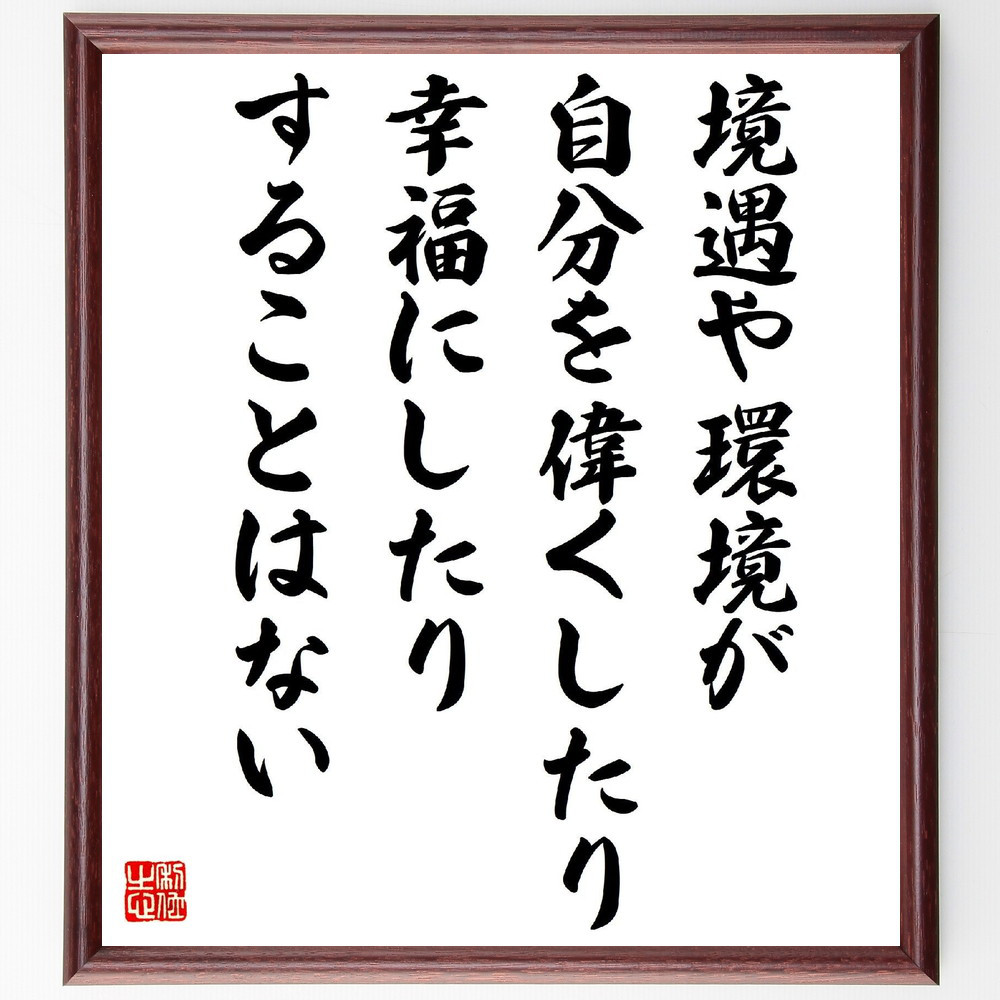 境遇や環境が
自分を偉くしたり
幸福にしたり
することはない